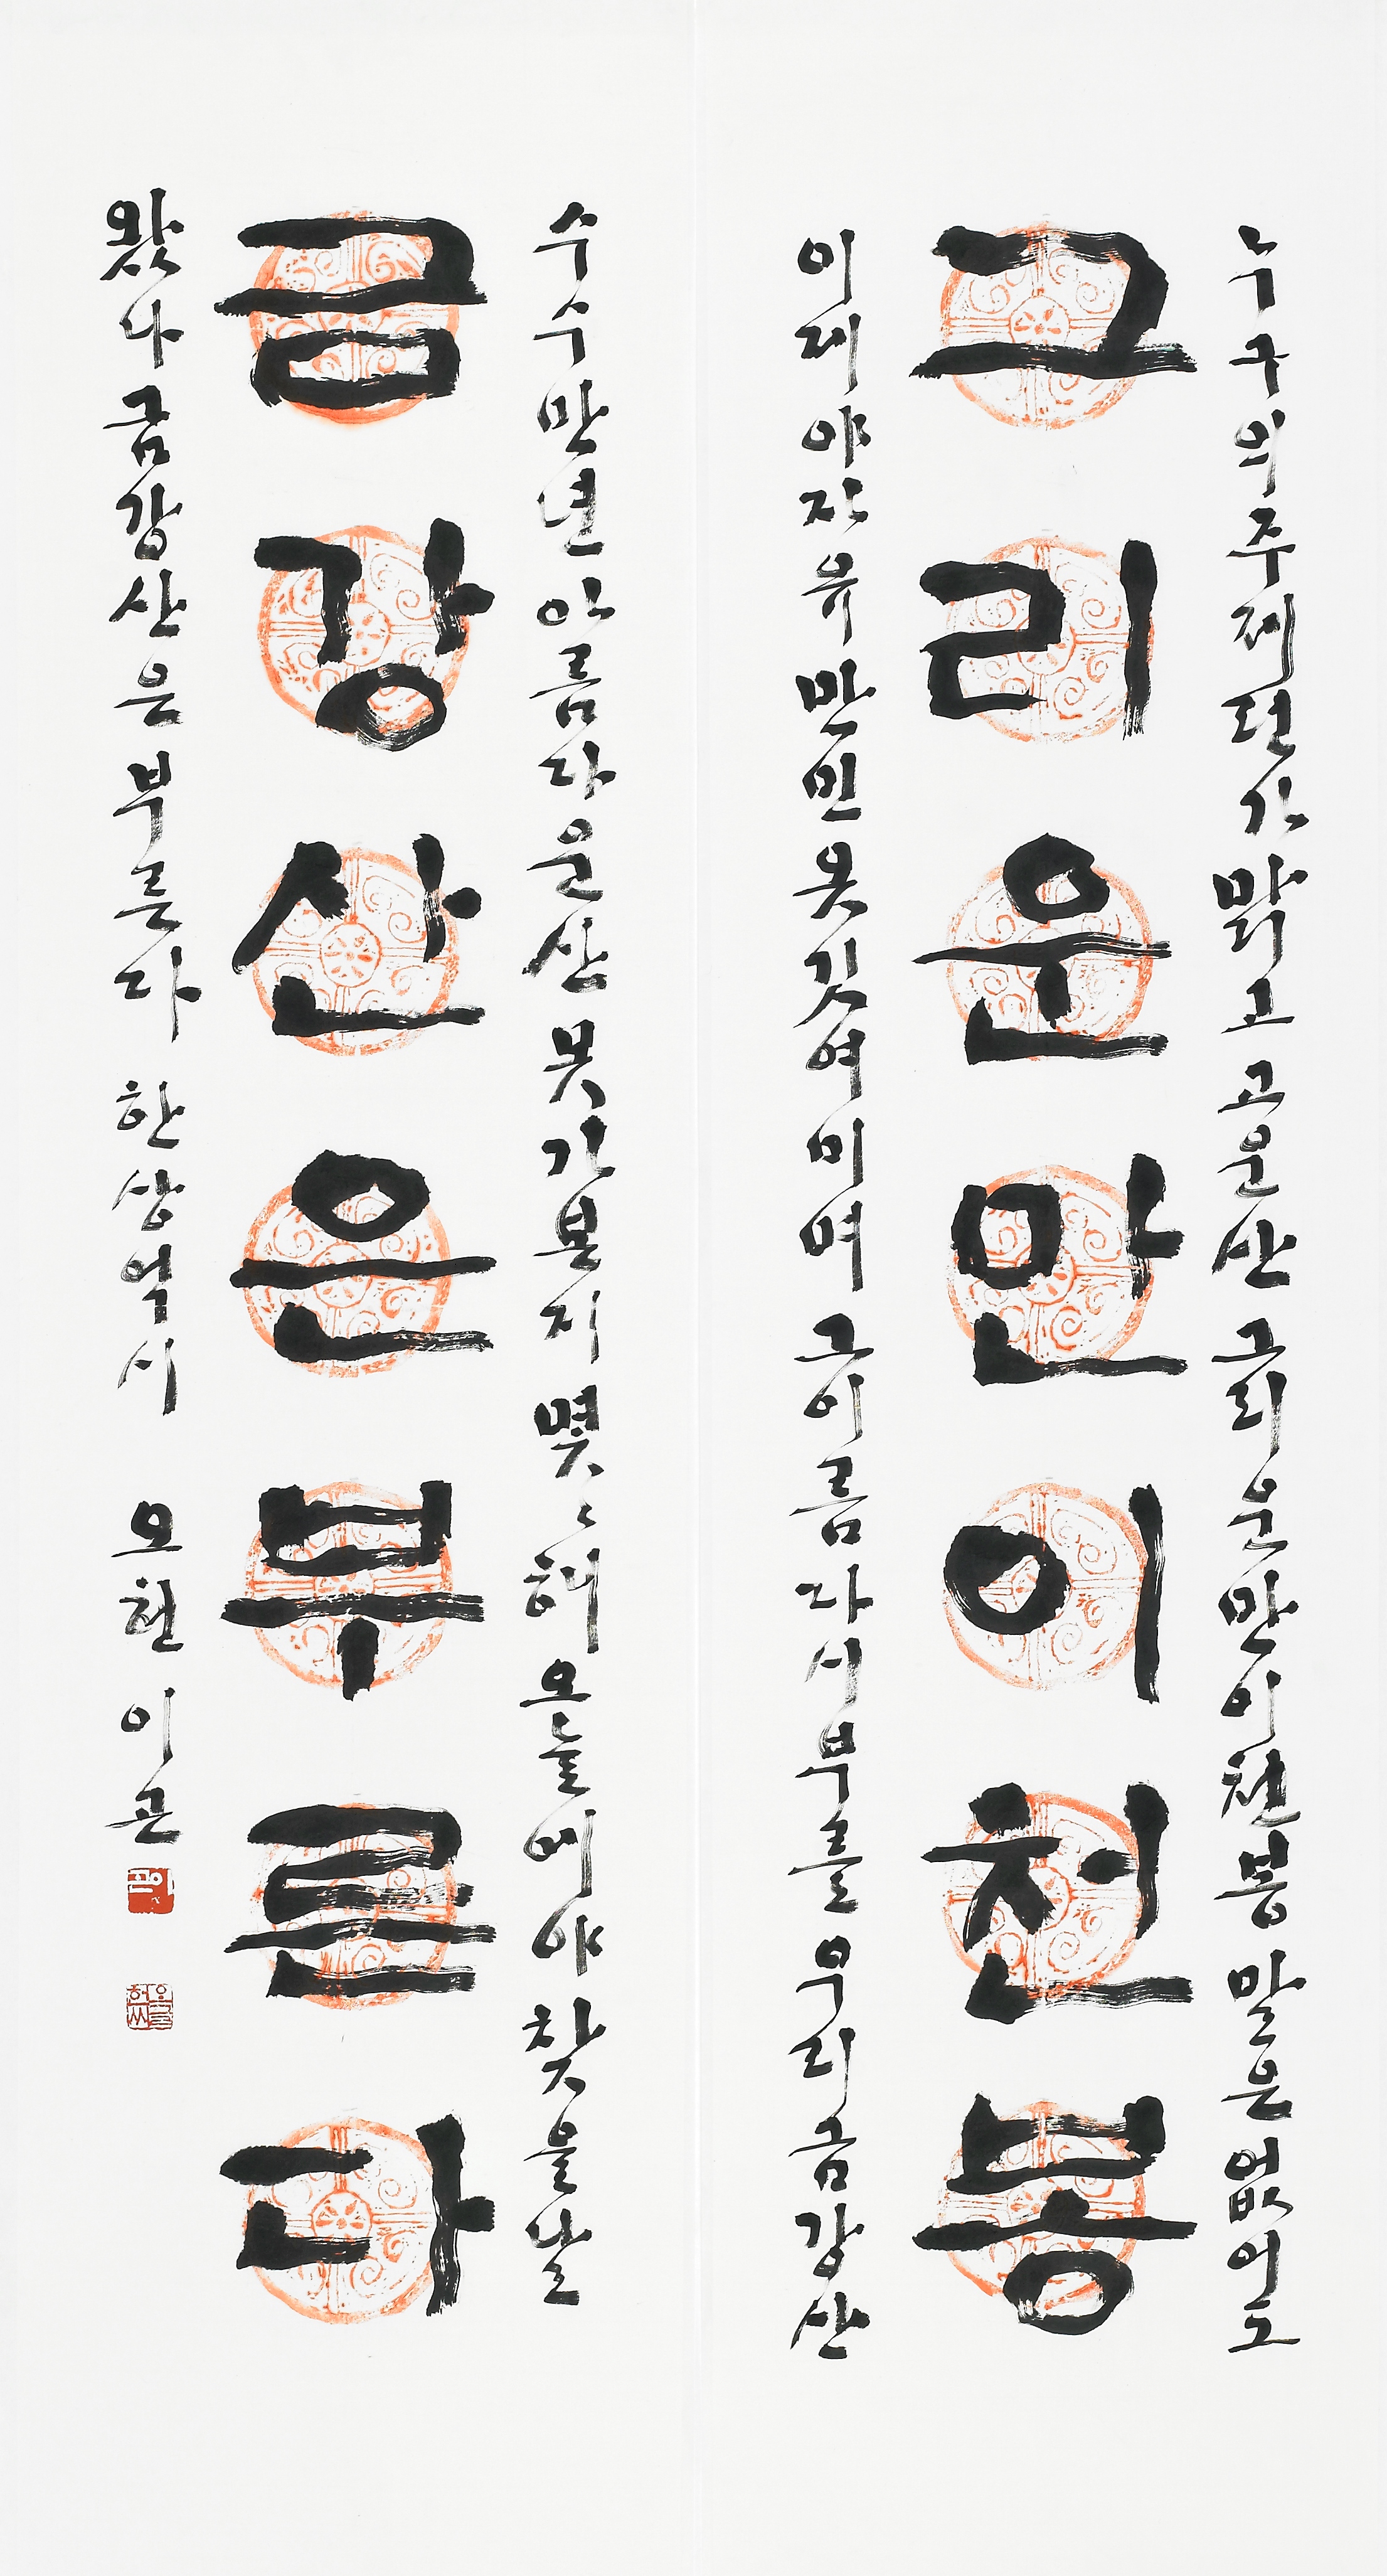 누구의 주제런가 맑고 고운 산 그리운 만이천봉 말은 없어도
그리운만이천봉
이제야 자유 만민 옷깃 여미며 그 이름 다시 부를 우리 금강산
수수만년 아름다운 산 못 가본지 몇〻해 오늘에야 찾을 날
금강산은부른다
왔나 금강산은 부른다 한상억 시 오헌 이곤